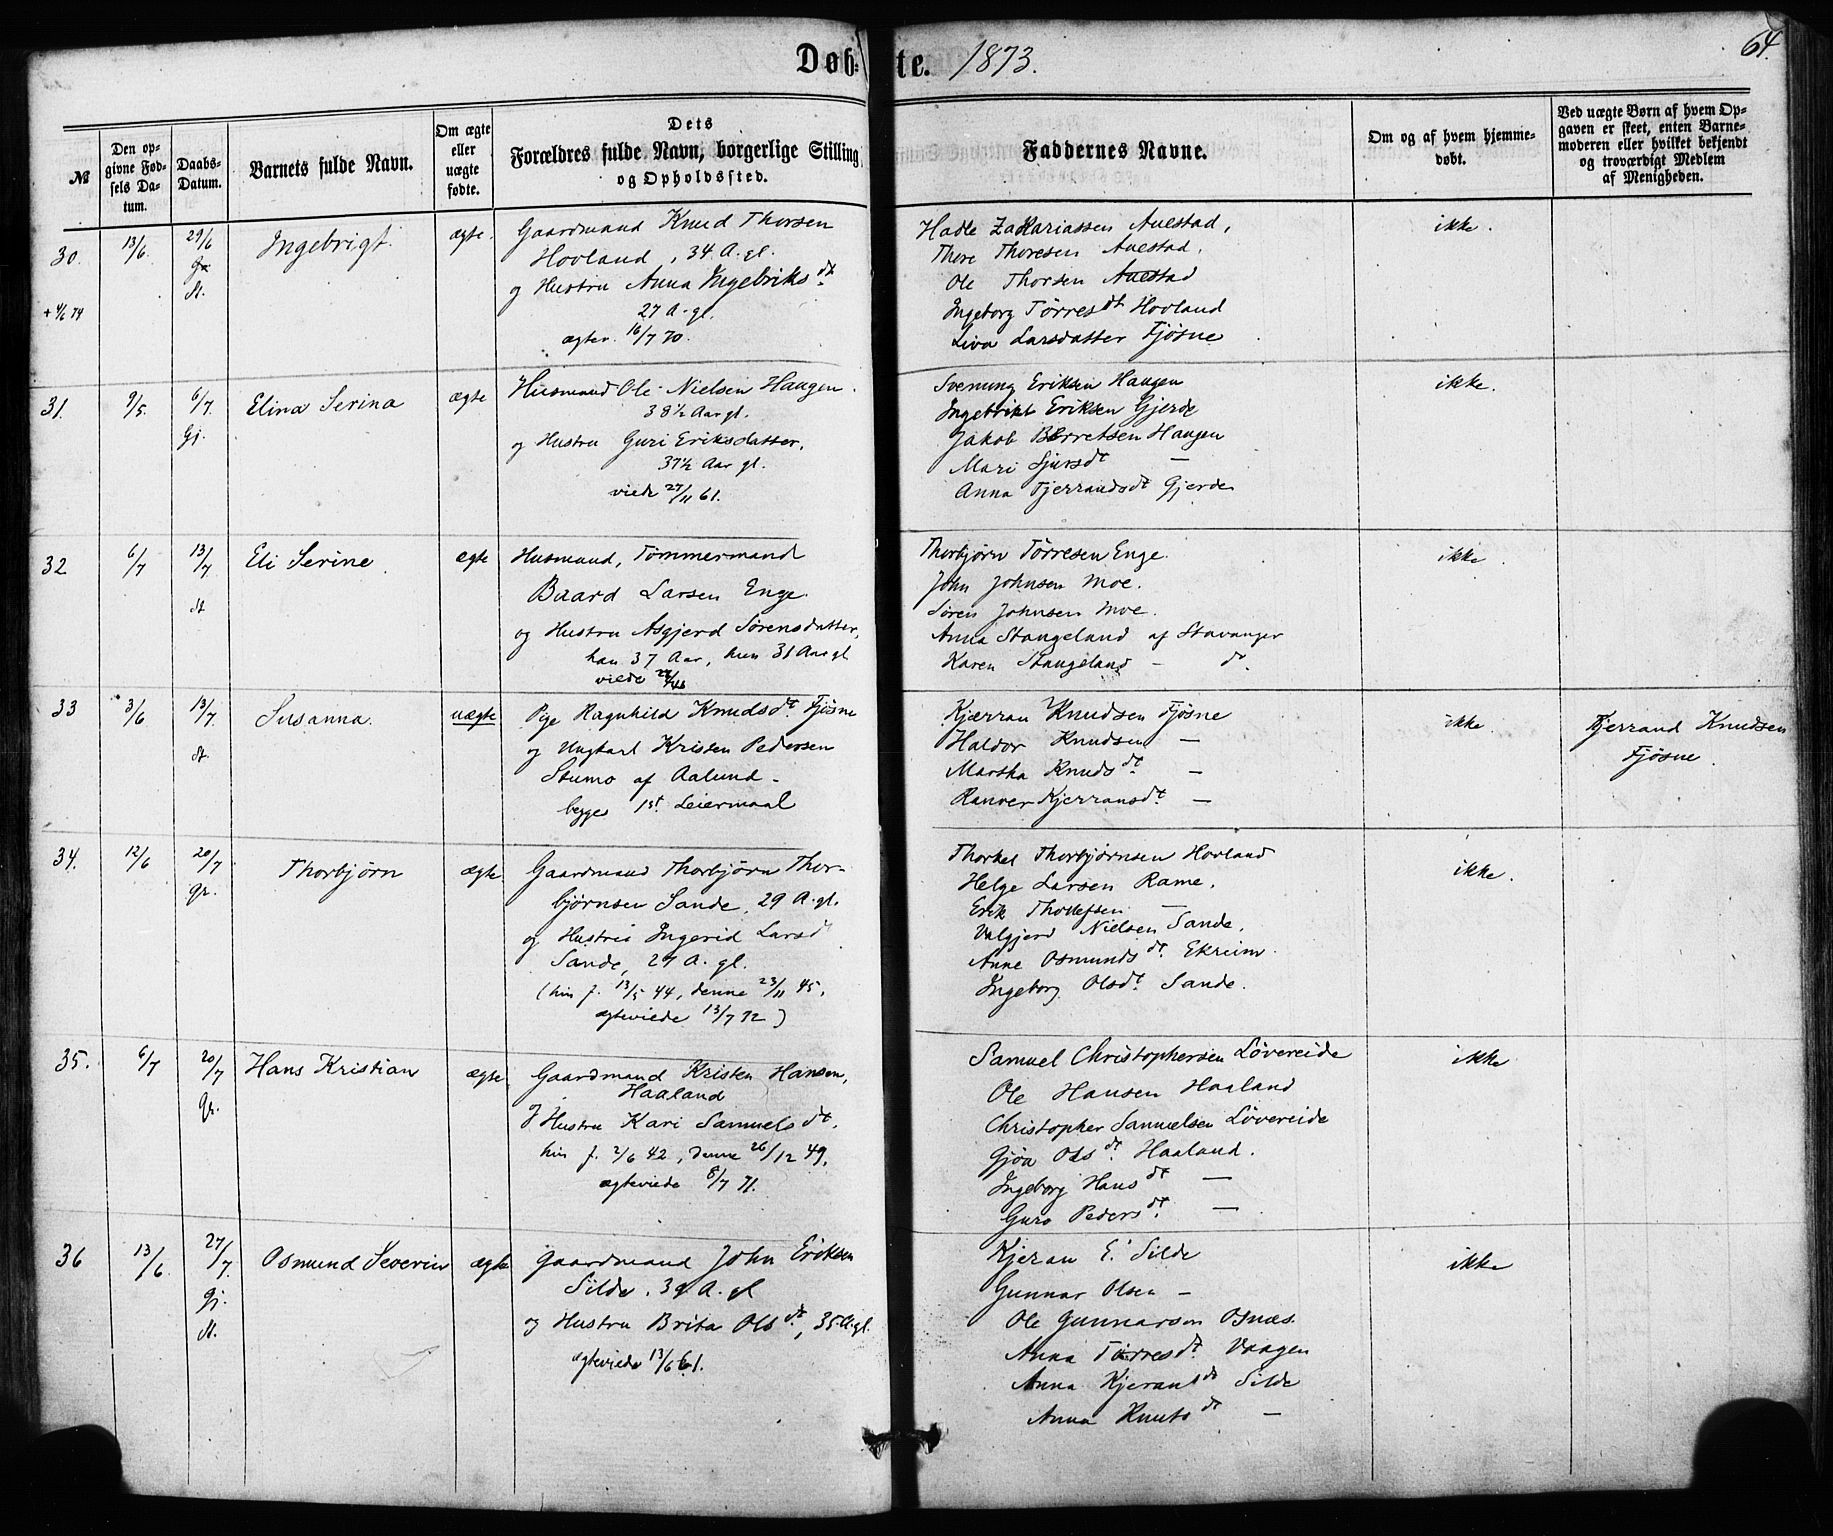 Døbte. 1873.
64.
№
Den opgivne Fødsels Datum.
Daabs-Datum.
Barnets fulde Navn.
Om ægte eller uægte fødte.
Dets Forældres fulde Navn, borgerlige Stilling og Opholdssted.
Faddernes Navne.
Om og af hvem hjemmedøbt.
Ved uægte Børn af hvem Opgaven er skeet, enten Barnemoderen eller hvilket bekjendt og troværdigt Medlem af Menigheden.
30.
+ 4/6 74
13/6.
29/6
st.
Ingebrigt.
ægte.
Gaardmand Knud Thorsen
Hovland, 34 A. gl.
og Hustru Anna Ingebriks dt
27 A. gl.
ægtev. 16/7 70.
Hadle Zakariassen Auestad,
Thore Thoresen Auestad,
Ole Thorsen Auestad
Ingeborg Tørresdt Hovland
Liva Larsdatter Fjøsne
ikke.
31.
9/5.
6/7.
Gj.
Elina Serina
ægte
Husmand Ole Nielsen Haugen.
38½ Aar gl.
og Hustru Guri Eriksdatter,
37½ Aar gl.
viede 27/11 61.
Svenung Eriksen Haugen
Ingebrikt Eriksen Gjerde
Jakob Berretsen Haugen
Mari Sjursdt —
Anna Tjerrandsdt Gjerde
ikke.
32
6/7
13/7
st
Eli Serine
ægte
Husmand, Tømmermand
Baard Larsen Enge.
og Hustru Asgjerd Sørensdatter,
han 37 Aar, hun 31 Aar gl
viede
Thorbjørn Tørresen Enge.
John Johnsen Moe.
Søren Johnsen Moe.
Anna Stangeland af Stavanger
Karen Stangeland — dt.
ikke.
33
3/6
13/7
st.
Susanna.
uægte
Pige Ragnhild Knudsdt. Fjøsne
og Ungkarl Kristen Pedersen
Stumo af Aalund.
begges 1st Leiermaal
Kjærran Knudsen Fjøsne
Haldor Knudsen —
Martha Knudsdt. —
Ranver Kjerransdt. —
ikke.
Kjerrand Knudsen
Fjøsne.
34.
12/6
20/7
Gr.
Thorbjørn
ægte.
Gaardmand Thorbjørn Thor-
bjørnsen Sande, 29 A. gl.
og Hustru Ingerid Larsdt
Sande, 27 A. gl.
(hin f. 13/5 44, denne 23/11 45,
ægteviede 13/7 72)
Thorkel Thorbjørnsen Hovland
Helge Larsen Rame.
Erik Thollefsen —
Valgjerd Nielsen Sande.
Anne Osmundsdt. Ekreim.
Ingeborg Olsdt. Sande.
ikke.
35.
6/7
20/7
Gr.
Hans Kristian
ægte.
Gaardmand Kristen Hansen,
Haaland
og Hustru Kari Samuelsdt.
hin f. 2/6 42, denne 26/12 49,
ægteviede 8/7 71.
Samuel Christophersen Løvereide
Ole Hansen Haaland
Christopher Samuelsen Løvereide
Gjøa Olsdt. Haaland.
Ingeborg Hansdt —
Guro Pedersdt. —
ikke
36
13/6
27/7.
Gj.
st.
Osmund Severin
ægte
Gaardmand John Eriksen
Silde, 39 A. gl
og Hustru Brita Olsdt., 35 A. gl.
ægteviede 13/6 61.
Kjeran E. Silde
Gunnar Olsen —
Ole Gunnarson Osnæs.
Anna Tørresdt. Vaagen
Anna Kjeransdt Silde
Anna Knutsdt —
ikke